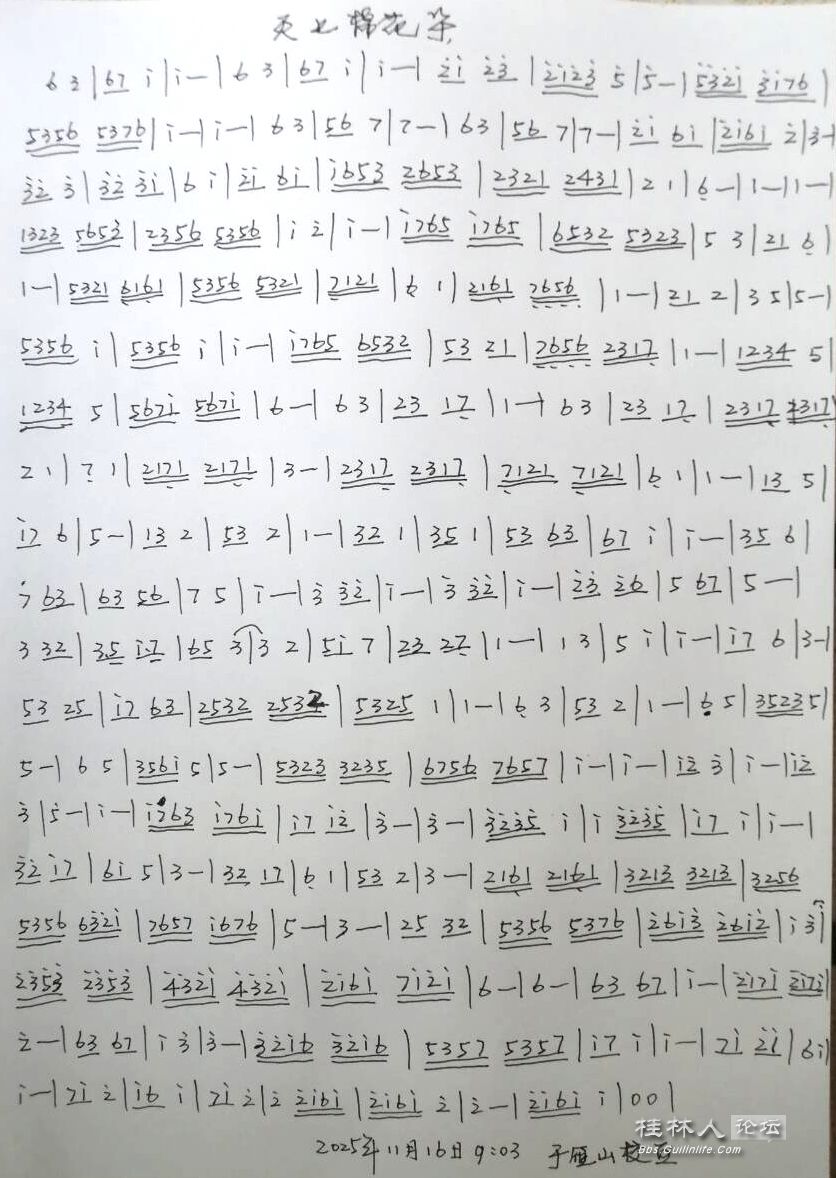 天上棉花朵
6 3 | 67 i | i — | 6 3 | 67 i | i — | 2̇i 2̇3̇ | 2̇i2̇3̇ 5̇ | 5̇ — | 5̇3̇2̇i 3̇i76 |
5356 5376 | i — | i — | 6 3 | 56 7 | 7 — | 63 | 56 7 | 7 — | 2̇i 6i | 2̇i6i 2̇ | 3̇ —
3̇2̇ 3̇ | 3̇2̇ 3̇i | 6 i | 2̇i 6i | i653 2653 | 2321 2431 | 2 1 | 6̣ — | 1 — | 1 —
1323 5653 | 2356 5356 | i 2̇ | i — | i765 i765 | 6532 5323 | 5 3 | 21 6̣ |
1 — | 5321 6̣16̣1 | 5356 5321 | 7̣121 | 6̣ 1 | 216̣1 7̣6̣5̣6̣ | 1 — | 21 2 | 3 5 | 5 — |
5356 i | 5356 i | i — | i765 6532 | 53 21 | 7̣6̣5̣6̣ 2317̣ | 1 — | 1234 5 |
1234 5 | 567i 567i | 6 — | 6 3 | 23 17̣ | 1 — | 6 3 | 23 17̣ | 2317̣ 2317̣
2 1 | 7̣ 1 | 217̣1 217̣1 | 3 — | 2317̣ 2317̣ | 7̣121 7̣121 | 6̣ 1 | 1 — | 13 5 |
i7 6 | 5 — | 13 2 | 53 2 | 1 — | 32 1 | 35 1 | 53 63 | 67 i | i — | 35 6 |
7 63 | 63 56 | 7 5 | i — | 3̇ 3̇2̇ | i — | 3̇ 3̇2̇ | i — | 2̇3̇ 2̇6 | 5 67 | 5 — |
3 32 | 35 i7 | 65 3 | 3 2 | 5i 7 | 23 27̣ | 1 — | 1 3 | 5 i | i — | i7 6 | 3 —
53 25 | i7 63 | 2532 2532 | 5325 1 | 1 — | 6̣ 3 | 53 2 | 1 — | 6̣ 5 | 3523 5 |
5 — | 6 5 | 356i 5 | 5 — | 5323 3235 | 6756 7657 | i — | i — | i2̇ 3̇ | i — | i2̇
3̇ | 5̇ — | i — | i763 i76i | i7 i2̇ | 3̇ — | 3̇ — | 3̇2̇3̇5̇ i | i 3̇2̇3̇5̇ | i7 i | i — |
3̇2̇ i7 | 6i 5 | 3 — | 32 17 | 6̣ 1 | 53 2 | 3 — | 216̣1 216̣1 | 3213 3213 | 3256
5356 632̇i | 7657 i676 | 5 — | 3 — | 25 32 | 5356 5376 | 2̇6i3̇ 2̇6i2̇ | i 3̇ |
2̇3̇5̇3̇ 2̇3̇5̇3̇ | 4̇3̇2̇i 4̇3̇2̇i | 2̇i6i 7i2̇i | 6 — | 6 — | 63 67 | i — | 2̇i7i 2̇i7i |
2̇ — | 63 67 | i 3̇ | 3̇ — | 3̇2̇i6 3̇2̇i6 | 5357 5357 | i7 i | i — | 7i 2̇i | 6i |
i — | 7i 2̇ | i6 i | 7i 2̇ | 2̇ 2̇i6i | 2̇i6i 2̇ | 2̇ — | 2̇i6i i | 0 0 |
2025年11月16日9:03 于雁山校区
桂林人论坛
Bbs.Guilinlife.Com